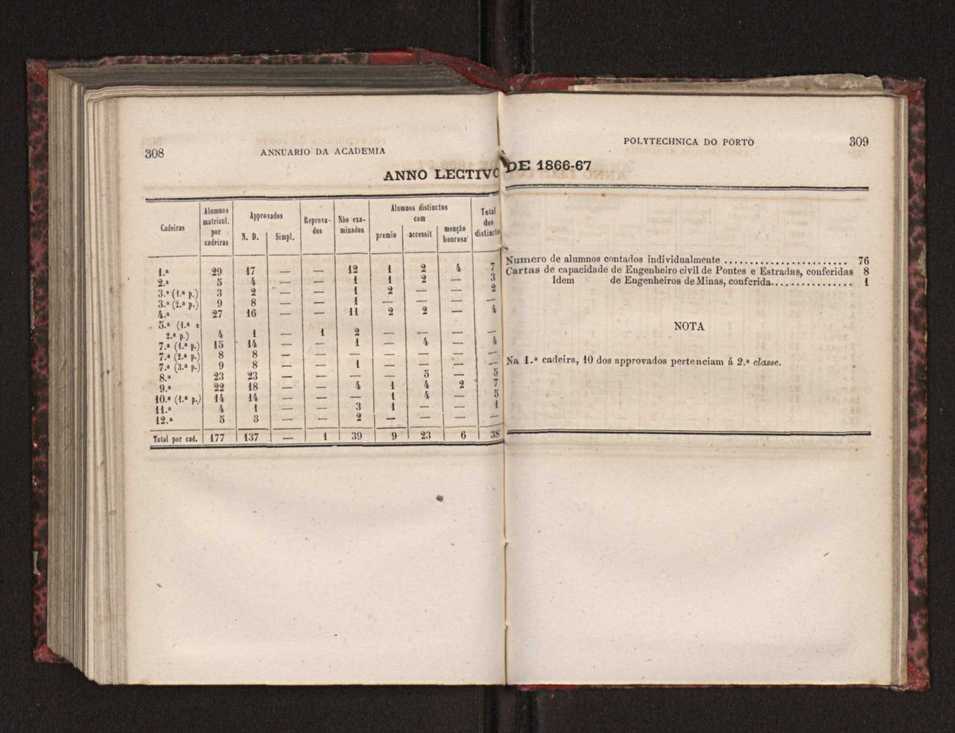 308 ANNUARIO DA ACADEMIA
ANNO LECTIVO
Cadeiras | Alumnos matricul. por cadeiras | Approvados N. D. | Simpl. | Reprovados | Não examinados | Alumnos distinctos com premio | accessit | menção honrosa | Total dos distinctos
1.ª 29 17 — — 12 1 2 4 7
2.ª 5 4 — — 1 1 2 — 3
3.ª (1.ª p.) 3 2 — — 1 2 — — 2
3.ª (2.ª p.) 9 8 — — 1 — — — —
4.ª 27 16 — — 11 2 2 — 4
5.ª (1.ª e
2.ª p.) 4 1 — 1 2 — — — —
7.ª (1.ª p.) 15 14 — — 1 — 4 — 4
7.ª (2.ª p.) 8 8 — — — — — — —
7.ª (3.ª p.) 9 8 — — 1 — — — —
8.ª 23 23 — — — — 5 — 5
9.ª 22 18 — — 4 1 4 2 7
10.ª (1.ª p.) 14 14 — — — 1 4 — 5
11.ª 4 1 — — 3 1 — — 1
12.ª 5 3 — — 2 — — — —
Total por cad. 177 137 — 1 39 9 23 6 38
POLYTECHNICA DO PORTO 309
DE 1866-67
Numero de alumnos contados individualmente ....................... 76
Cartas de capacidade de Engenheiro civil de Pontes e Estradas, conferidas 8
Idem de Engenheiros de Minas, conferida................ 1
NOTA
Na 1.ª cadeira, 10 dos approvados pertenciam á 2.ª classe.